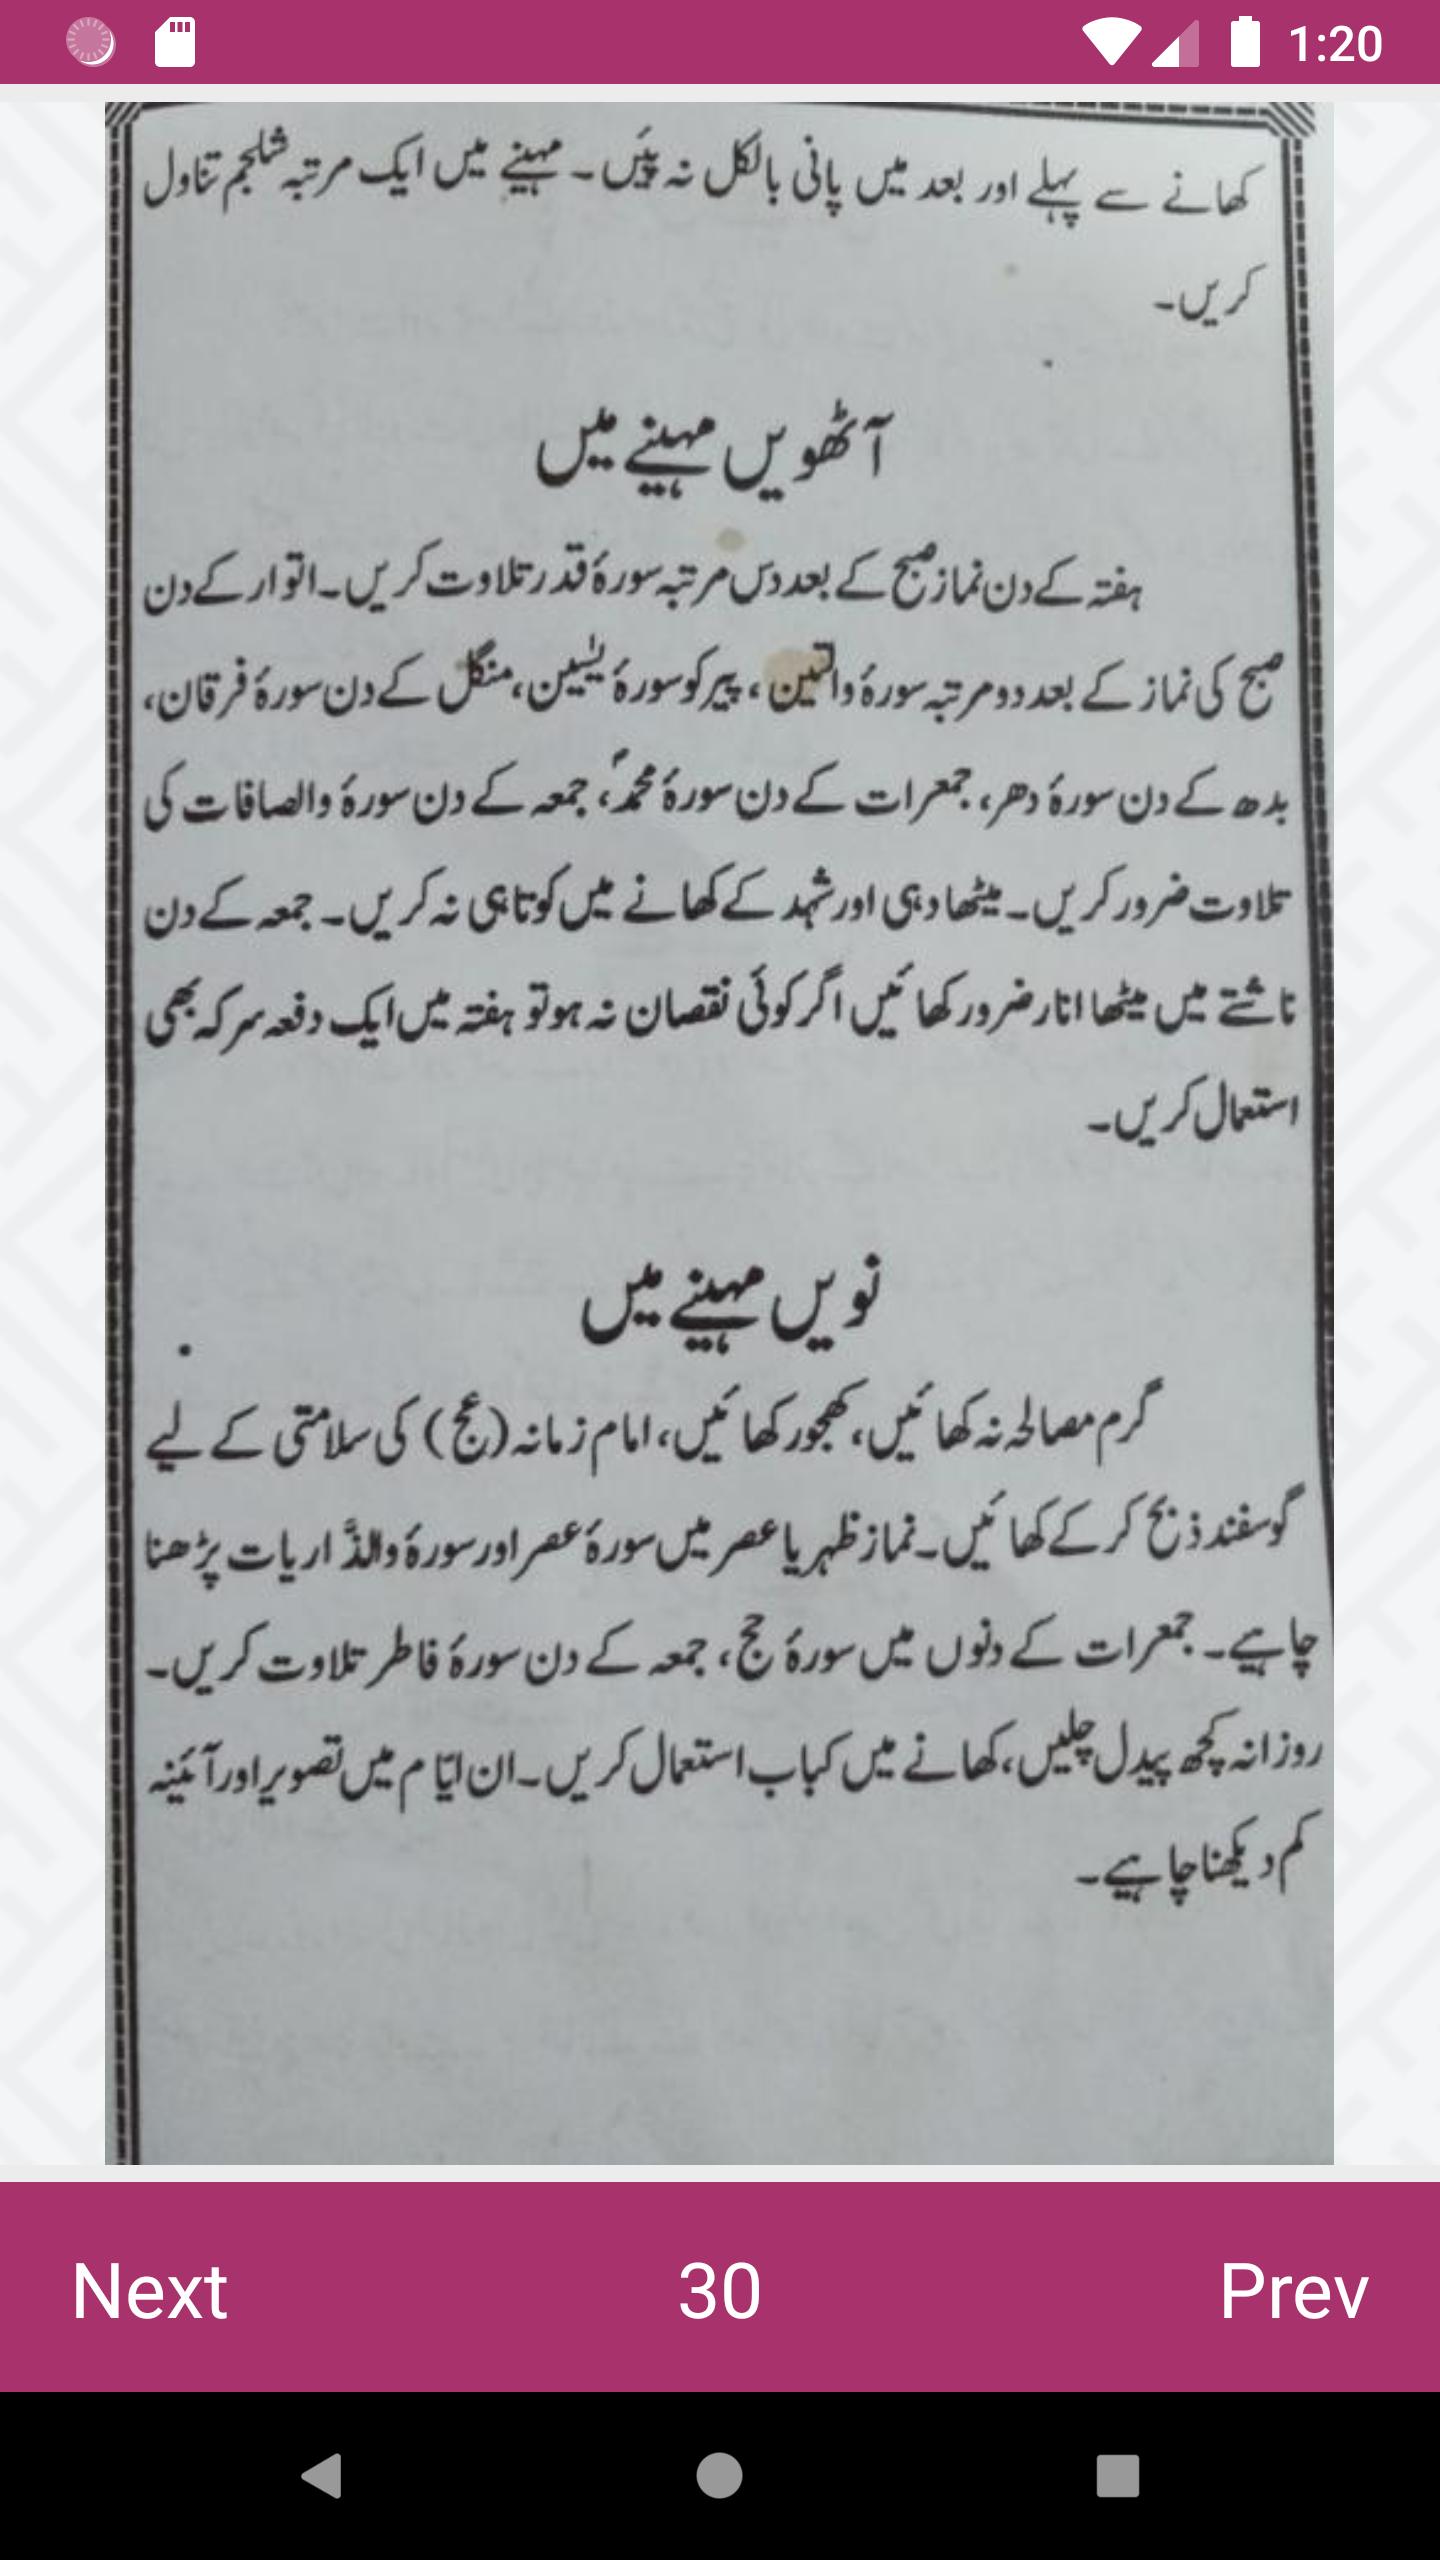 1:20
کھانے سے پہلے اور بعد میں پانی بالکل نہ پیئں۔ مہینے میں ایک مرتبہ شلجم تناول
کریں۔
آٹھویں مہینے میں
ہفتہ کے دن نماز صبح کے بعد دس مرتبہ سورۂ قدر تلاوت کریں۔ اتوار کے دن
صبح کی نماز کے بعد دو مرتبہ سورۂ والتین، پیر کو سورۂ یٰسین، منگل کے دن سورۂ فرقان،
بدھ کے دن سورۂ دھر، جمعرات کے دن سورۂ محمدؐ، جمعہ کے دن سورۂ والصافات کی
تلاوت ضرور کریں۔ میٹھا دہی اور شہد کے کھانے میں کوتاہی نہ کریں۔ جمعہ کے دن
ناشتے میں میٹھا انار ضرور کھائیں اگر کوئی نقصان نہ ہو تو ہفتہ میں ایک دفعہ سرکہ بھی
استعمال کریں۔
نویں مہینے میں
گرم مصالحہ نہ کھائیں، کھجور کھائیں، امام زمانہ (عج) کی سلامتی کے لیے
گوسفند ذبح کر کے کھائیں۔ نماز ظہر یا عصر میں سورۂ عصر اور سورۂ والذّاریات پڑھنا
چاہیے۔ جمعرات کے دنوں میں سورۂ حج، جمعہ کے دن سورۂ فاطر تلاوت کریں۔
روزانہ کچھ پیدل چلیں، کھانے میں کباب استعمال کریں۔ ان ایّام میں تصویر اور آئینہ
کم دیکھنا چاہیے۔
Next 30 Prev